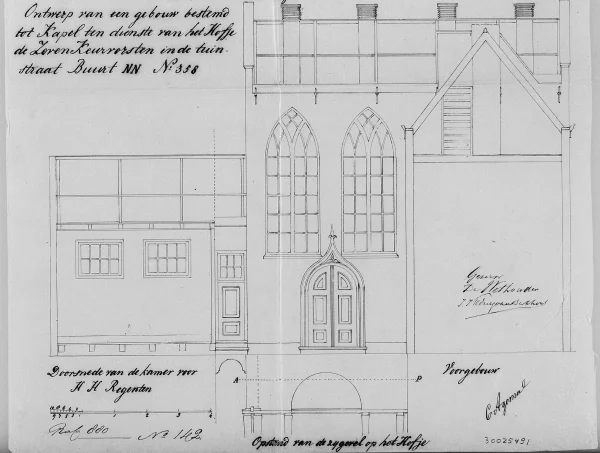 Ontwerp van een gebouw bestemd
tot Kapel ten dienste van het Hofje
de Zeven Keurvorsten in de tuin-
straat Buurt NN No 358
Gezien
Doorsnede van de kamer voor
H H Regenten
A
B
Voorgebouw
1 2 3 4
No 142
Opstand van de zygevel op het Hofje
30025491